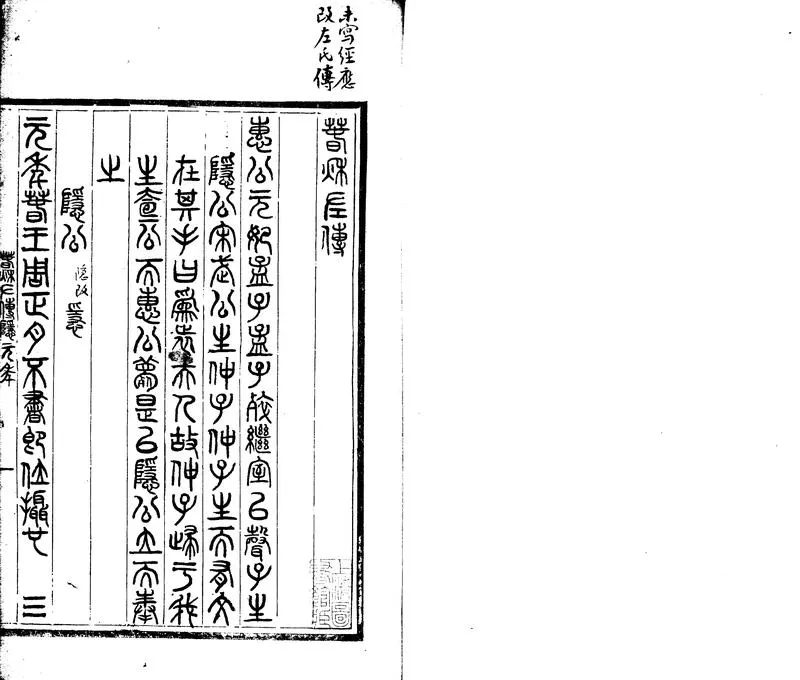 未寫經應
改左氏傳
春秋左傳
惠公元妃孟子孟子卒繼室以聲子生
隱公宋武公生仲子仲子生而有文
在其手曰為魯夫人故仲子歸于我
生桓公而惠公薨是以隱公立而奉
之
隱公 隱改㥯
元年春王周正月不書即位攝也 三
春秋左傳隱元年 一
上海圖書館藏